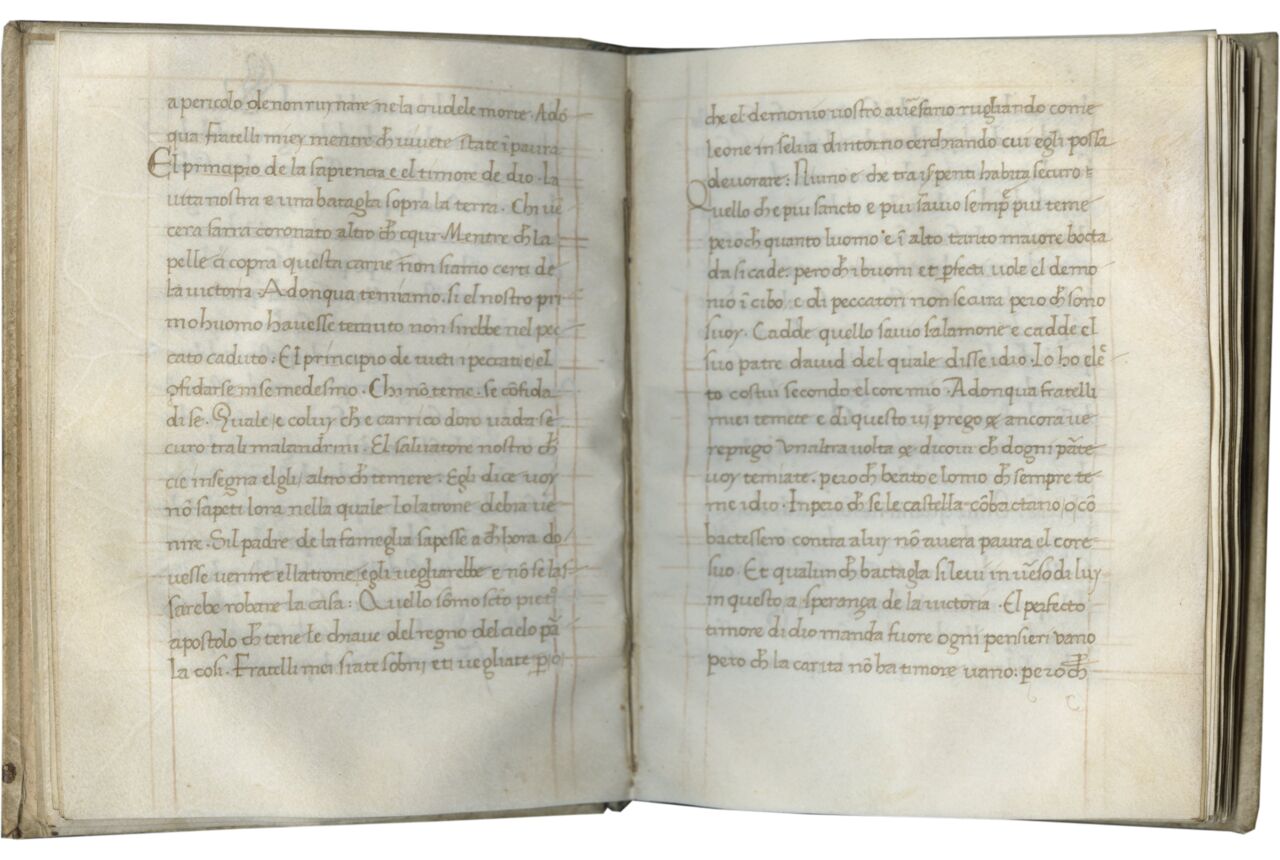 a pericolo o le non ruynare ne la crudele morte. Adō
qua fratelli miey mentre ch̄ viuete state ī paura
El principio de la sapiencia e el timore de dio. la
uita nostra e una batagla sopra la terra. Chi uē
cera sarra coronato altro ch̄ cqui. Mentre ch̄ la
pelle ci copra questa carne non siamo certi de
la uictoria. Adonqua temiamo. si el nostro pri
mo huomo hauesse temuto non sirebbe nel pec
cato caduto: El principio de tucti i peccati e el
ꝯfidarse in se medesmo. Chi nō teme. se cōfida
di se. Quale e coluy ch̄ e carrico doro uada se
curo tra li malandrini. El saluatore nostro ch̄
cie insegna elgli altro ch̄ temere. Egli dice uoy
nō sapeti lora nella quale lo latrone debia ue
nire. Sil padre de la fameglia sapesse a ch̄ hora do
uesse uenire el latrone egli uegliarebbe e nō se las
sarebe robare la casa: Quello sōmo sc̄to piet°
apostolo ch̄ tene le chiaue del regno del cielo pā
la cosi. Fratelli mei siate sobrij et i uegliate ꝑo
che el demonio uostro auēsario rugliando come
leone in selua dintorno cerchiando cui egli possa
deuorare: Niuno e che tra i spenti habita securo
Quello che e piu sancto e piu sauio semp̄ piu teme
pero ch̄ quanto luomo e ī alto tanto maiore bocta
da si cade. pero ch̄ i buoni et ꝑfecti uole el demo
nio ī cibo. e di peccatori non se cura pero ch̄ sono
suoy. Cadde quello sauio salamone e cadde el
suo patre dauid del quale disse idio. Io ho elē
to costui secondo el core mio. Adonqua fratelli
miei temete e di questo ui prego & ancora ue
repriego vnaltra uolta & dicoui ch̄ dogni pāte
uoy temiate. pero ch̄ beato e lomo ch̄ sempre te
me idio. Inpero ch̄ se le castella cōbactano o cō
bactessero contra a luy nō auera paura el core
suo. Et qualunch̄ bactagla si leui in uēso di luy
in questo a sperança de la uictoria. El perfecto
timore di dio manda fuore ogni pensieri uano
pero ch̄ la carita nō ha timore uano: pero ch̄